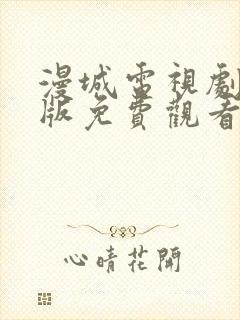 漫城電視劇
版免費觀看
心晴花開